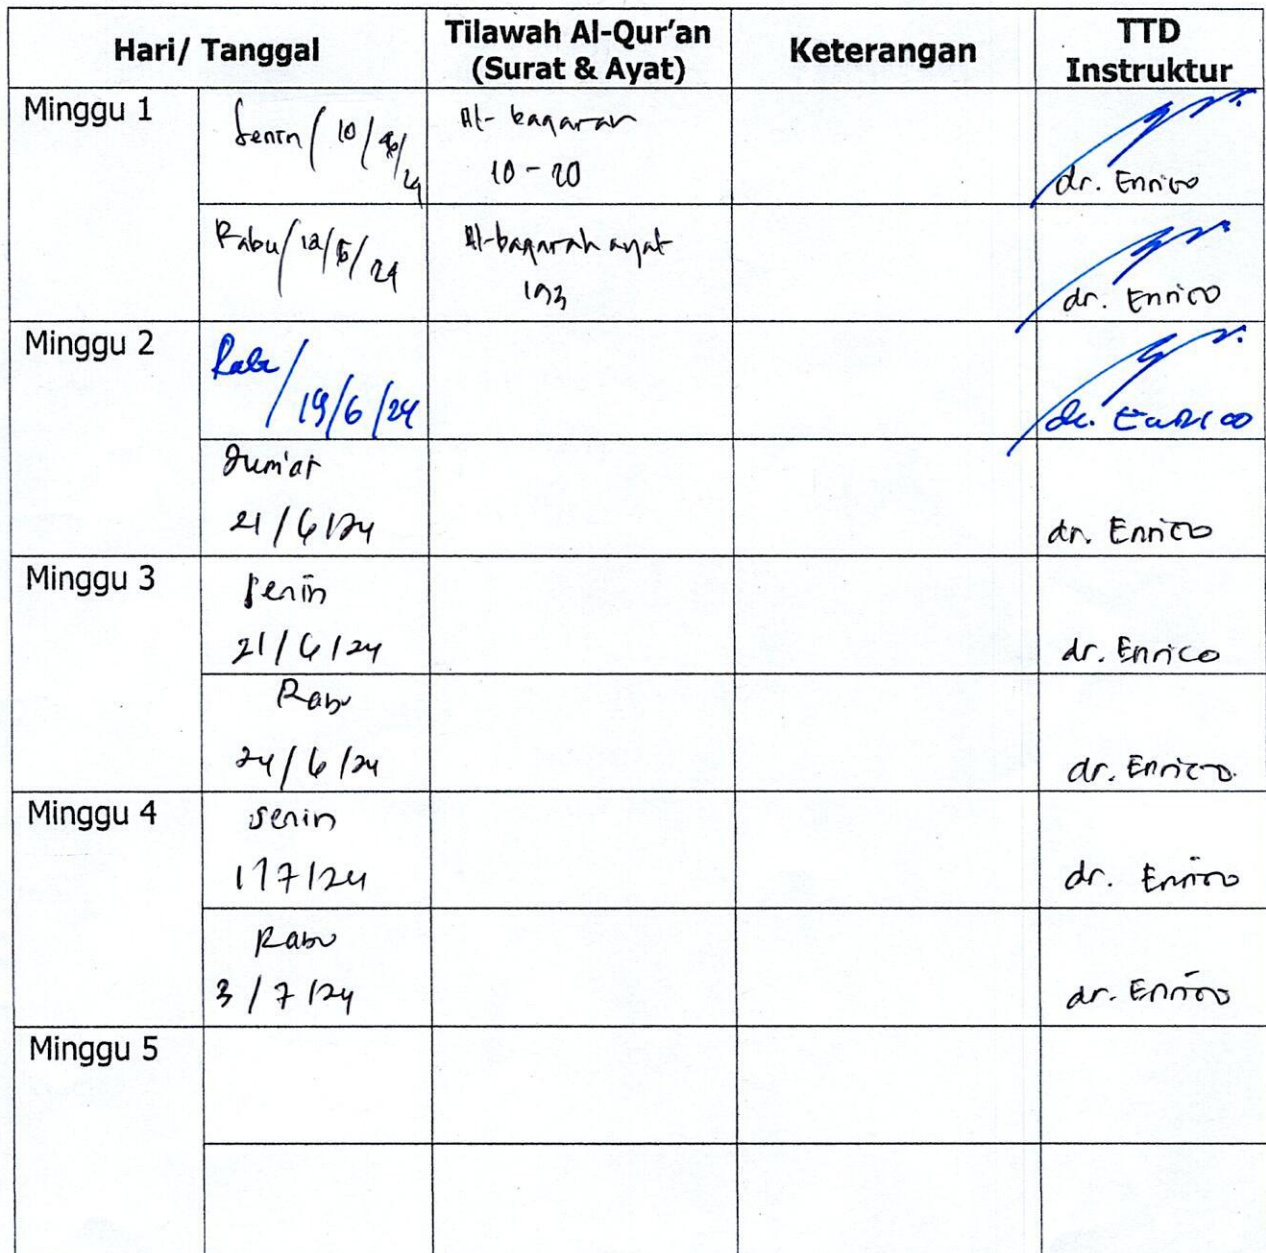 Hari/ Tanggal
Tilawah Al-Qur'an
(Surat & Ayat)
Keterangan
TTD
Instruktur
Minggu 1
Senin / 10/6/24
Al-baqarah
10-20
dr. Enrico
Rabu/12/6/24
Al-baqarah ayat
193
dr. Enrico
Minggu 2
Rabu /
19/6/24
dr. Enrico
Jum'at
21/6/24
dr. Enrico
Minggu 3
Senin
21/6/24
dr. Enrico
Rabu
24/6/24
dr. Enrico
Minggu 4
Senin
1/7/24
dr. Enrico
Rabu
3/7/24
dr. Enrico
Minggu 5